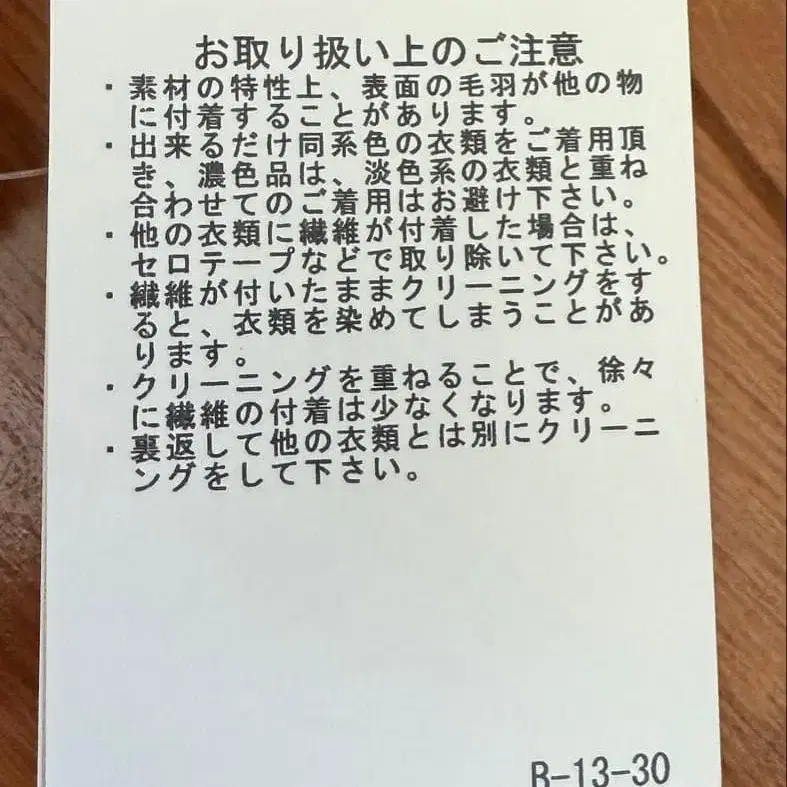 お取り扱い上のご注意
・素材の特性上、表面の毛羽が他の物
に付着することがあります。
・出来るだけ同系色の衣類をご着用頂
き、濃色品は、淡色系の衣類と重ね
合わせてのご着用はお避け下さい。
・他の衣類に繊維が付着した場合は、
セロテープなどで取り除いて下さい。
・繊維が付いたままクリーニングをす
ると、衣類を染めてしまうことがあ
ります。
・クリーニングを重ねることで、徐々
に繊維の付着は少なくなります。
・裏返して他の衣類とは別にクリーニ
ングをして下さい。
B-13-30